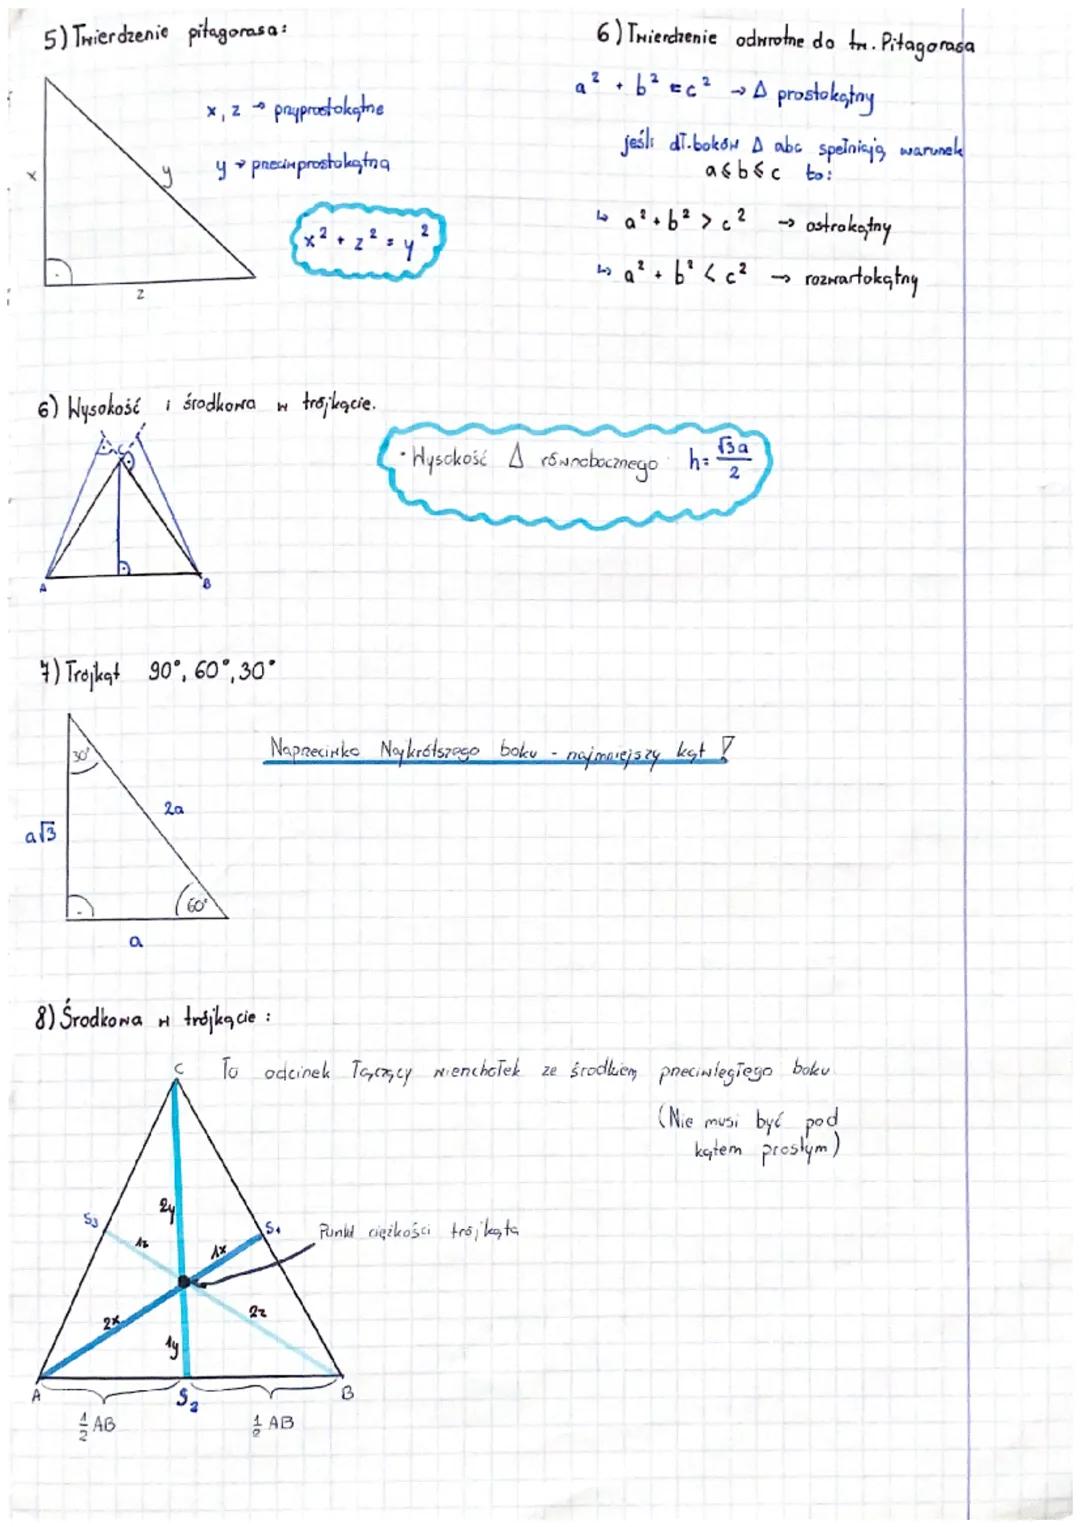 5) Twierdzenie pitagorasa:
x
y
z
x, z → przyprostokątne
y → przeciwprostokątna
x² + z² = y²
6) Twierdzenie odwrotne do tw. Pitagorasa
a² + b² = c² → Δ prostokątny
jeśli dł. boków Δ abc spełniają warunek
a ≤ b ≤ c to:
↳ a² + b² > c² → ostrokątny
↳ a² + b² < c² → rozwartokątny
6) Wysokość i środkowa w trójkącie.
C
A
B
• Wysokość Δ równobocznego h = √3a/2
7) Trójkąt 90°, 60°, 30°
30°
2a
a√3
60°
a
Naprzeciwko Najkrótszego boku - najmniejszy kąt !
8) Środkowa w trójkącie:
To odcinek łączący wierzchołek ze środkiem przeciwległego boku.
(Nie musi być pod
kątem prostym)
C
2y
S₃
S₁
1z
1x
Punkt ciężkości trójkąta
2x
2z
1y
A
S₂
B
½ AB
½ AB